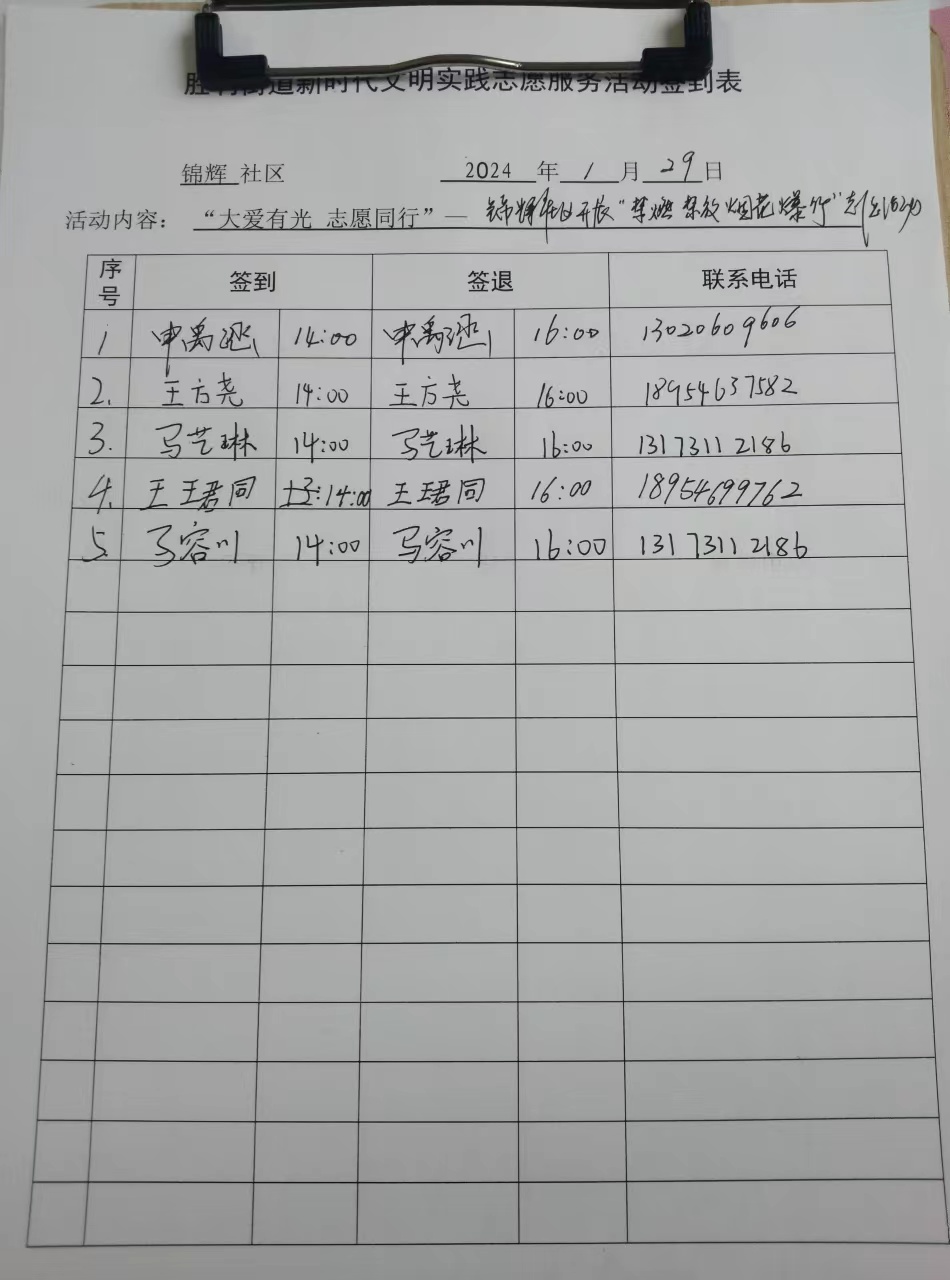 胜利街道新时代文明实践志愿服务活动签到表
锦辉 社区 2024 年 1 月 29 日
活动内容： “大爱有光 志愿同行”— 锦辉社区开展“禁燃禁放烟花爆竹”志愿活动
序号 签到 签退 联系电话
1 申禹 14:00 申禹 16:00 13020609606
2. 王方尧 14:00 王方尧 16:00 18954637582
3. 马艺琳 14:00 马艺琳 16:00 13173112186
4. 王王君同 14:00 王珺同 16:00 18954699762
5 马容川 14:00 马容川 16:00 13173112186